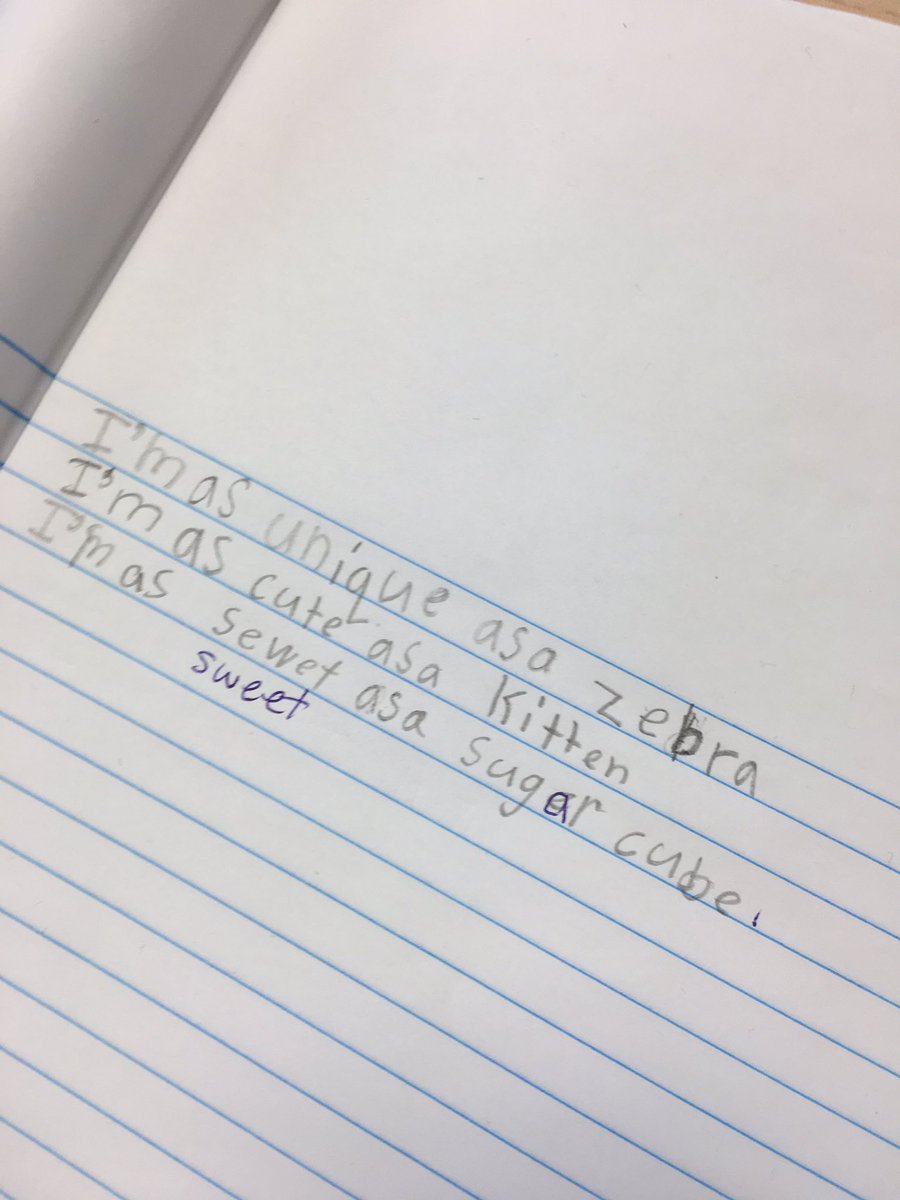 I'm as unique asa zebra
I'm as cute asa kitten
I'm as sewet asa sugar cube.
sweet